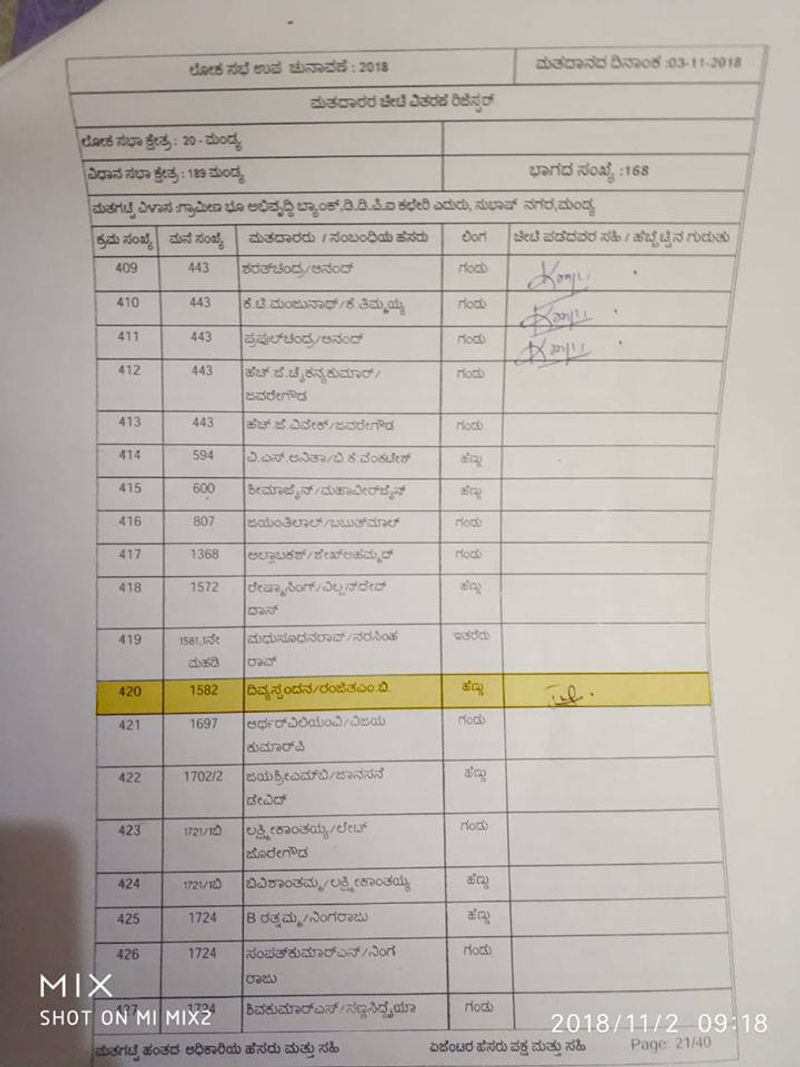 ಲೋಕ ಸಭೆ ಉಪ ಚುನಾವಣೆ : 2018 ಮತದಾನದ ದಿನಾಂಕ :03-11-2018
ಮತದಾರರ ಚೀಟಿ ವಿತರಣೆ ರಿಜಿಸ್ಟರ್
ಲೋಕ ಸಭಾ ಕ್ಷೇತ್ರ : 20 - ಮಂಡ್ಯ
ವಿಧಾನ ಸಭಾ ಕ್ಷೇತ್ರ : 189 ಮಂಡ್ಯ ಭಾಗದ ಸಂಖ್ಯೆ :168
ಮತಗಟ್ಟೆ ವಿಳಾಸ :ಗ್ರಾಮೀಣ ಭೂ ಅಭಿವೃದ್ಧಿ ಬ್ಯಾಂಕ್,ಡಿ.ಡಿ.ಪಿ.ಐ ಕಛೇರಿ ಎದುರು, ಸುಭಾಷ್ ನಗರ,ಮಂಡ್ಯ
ಕ್ರಮ ಸಂಖ್ಯೆ ಮನೆ ಸಂಖ್ಯೆ ಮತದಾರರು / ಸಂಬಂಧಿಯ ಹೆಸರು ಲಿಂಗ ಚೀಟಿ ಪಡೆದವರ ಸಹಿ / ಹೆಬ್ಬೆಟ್ಟಿನ ಗುರುತು
409 443 ಶರತ್‌ಚಂದ್ರ/ಆನಂದ್ ಗಂಡು
410 443 ಕೆ.ಟಿ.ಮಂಜುನಾಥ್/ಕೆ.ತಿಮ್ಮಯ್ಯ ಗಂಡು
411 443 ಪ್ರಫುಲ್‌ಚಂದ್ರ/ಆನಂದ್ ಗಂಡು
412 443 ಹೆಚ್.ಜೆ.ಚೈಕನ್ಯಕುಮಾರ್/ ಗಂಡು
ಜವರೇಗೌಡ
413 443 ಹೆಚ್.ಜೆ.ವಿವೇಕ್/ಜವರೇಗೌಡ ಗಂಡು
414 594 ವಿ.ಎಸ್.ಅನಿತಾ/ಬಿ.ಕೆ.ವೆಂಕಟೇಶ್ ಹೆಣ್ಣು
415 600 ಶೀಮಾಜೈನ್/ಮಹಾವೀರ್‌ಜೈನ್ ಹೆಣ್ಣು
416 807 ಜಯಂತಿಲಾಲ್/ಬಬುತ್‌ಮಾಲ್ ಗಂಡು
417 1368 ಅಲ್ಲಾಬಕಶ್/ಶೇಖ್‌ಅಹಮ್ಮದ್ ಗಂಡು
418 1572 ರೇಷ್ಮಾಸಿಂಗ್/ವಿಲ್ಸನ್‌ದೇವ್ ಹೆಣ್ಣು
ದಾಸ್
419 1581,1ನೇ ಮಧುಸೂಧನರಾವ್/ನರಸಿಂಹ ಇತರೆರು
ಮಹಡಿ ರಾವ್
420 1582 ದಿವ್ಯಸ್ಪಂದನ/ರಂಜಿತಎಂ.ಬಿ. ಹೆಣ್ಣು
421 1697 ಆರ್ಥರ್‌ವಿಲಿಯಂವಿ/ವಿಜಯ ಗಂಡು
ಕುಮಾರ್‌ವಿ
422 1702/2 ಜಯಶ್ರೀಎಮ್‌ಬಿ/ಜಾನಸನೆ ಹೆಣ್ಣು
ಡೇವಿಡ್
423 1721/1ಬಿ ಲಕ್ಷ್ಮೀಕಾಂತಯ್ಯ/ಲೇಟ್ ಗಂಡು
ಜೋರೇಗೌಡ
424 1721/1ಬಿ ಬಿವಿಶಾಂತಮ್ಮ/ಲಕ್ಷ್ಮೀಕಾಂತಯ್ಯ ಹೆಣ್ಣು
425 1724 B ರತ್ನಮ್ಮ/ನಿಂಗರಾಜು ಹೆಣ್ಣು
426 1724 ಸಂಪತ್‌ಕುಮಾರ್‌ಎನ್/ನಿಂಗ ಗಂಡು
ರಾಜು
427 1724 ಶಿವಕುಮಾರ್‌ಎಸ್/ಸಣ್ಣಸಿದ್ದೈಯಾ ಗಂಡು
ಮತಗಟ್ಟೆ ಹಂತದ ಅಧಿಕಾರಿಯ ಹೆಸರು ಮತ್ತು ಸಹಿ ಏಜೆಂಟರ ಹೆಸರು ಪಕ್ಷ ಮತ್ತು ಸಹಿ Page: 21/40
MIX
SHOT ON MI MIX2
2018/11/2 09:18